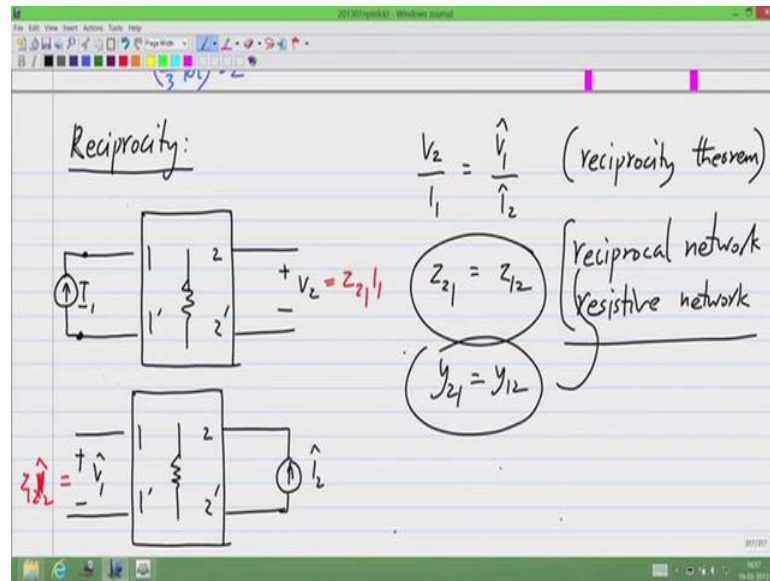 20130httptrick1 - Windows Journal
File Edit View Insert Actions Tools Help
Page Width
B I
Reciprocity:
V₂ / I₁ = V̂₁ / Î₂ (reciprocity theorem)
1 2
I₁ + V₂ = Z₂₁ I₁
1' 2' −
Z₂₁ = Z₁₂
reciprocal network
resistive network
y₂₁ = y₁₂
1 2
= + V̂₁ Î₂
− 1' 2'